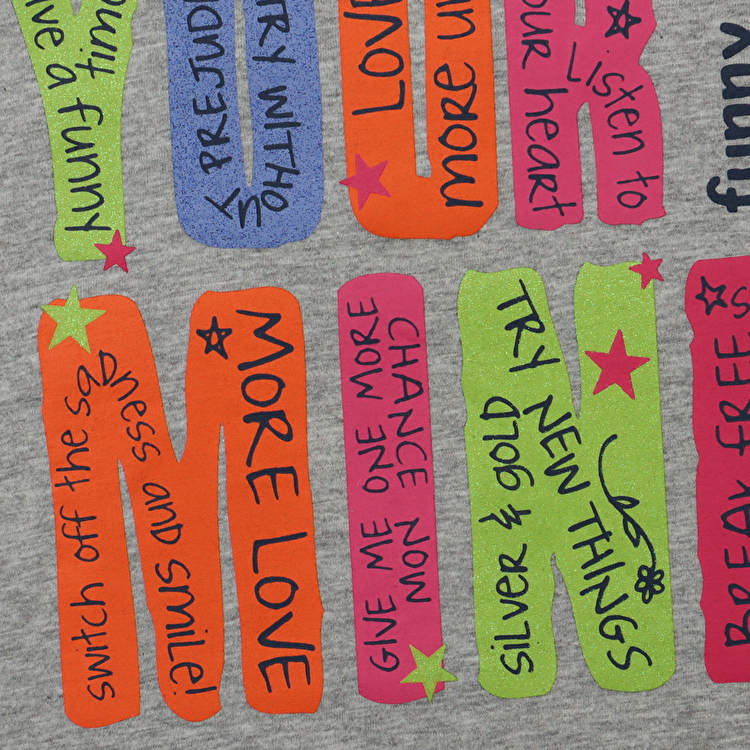 ive a
funny time
& PREJUDI
TRY WITH
LOVE
MORE UN
OUR heart
listen to
funny
switch off the sadness and smile!
MORE LOVE
GIVE ME ONE MORE
CHANCE NOW
SILVER & GOLD
TRY NEW THINGS
BREAK FREE